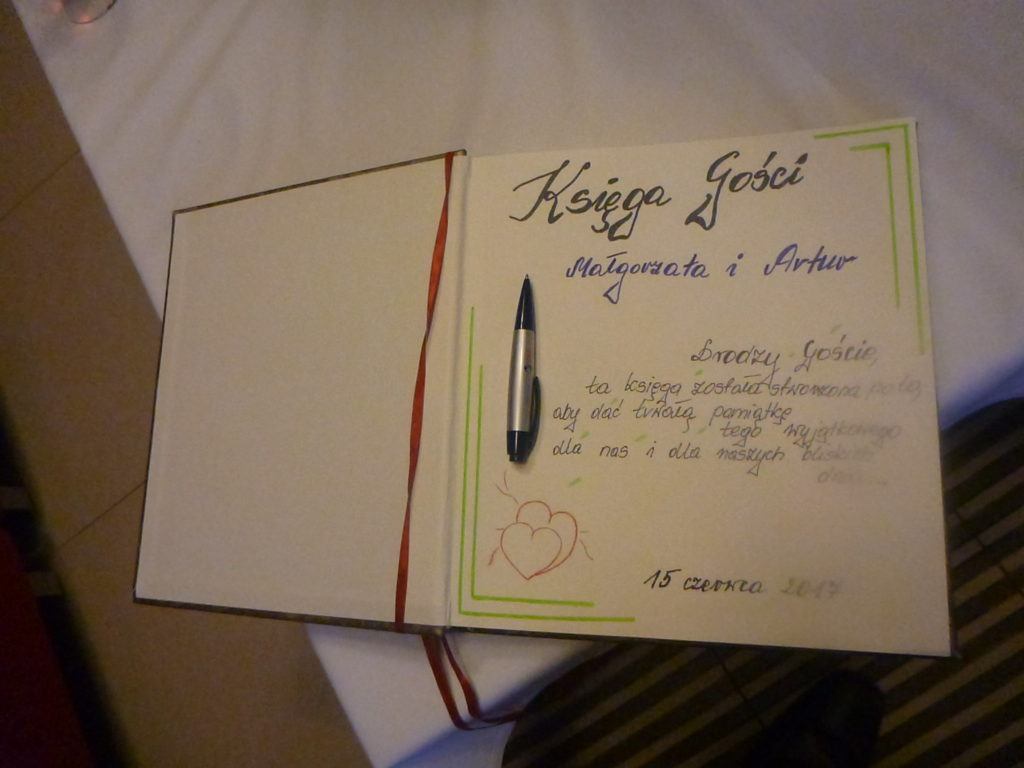 Księga Gości
Małgorzata i Artur
Drodzy Goście,
ta księga została stworzona po to,
aby dać trwałą pamiątkę
tego wyjątkowego
dla nas i dla naszych bliskich
dnia...
15 czerwca 2017